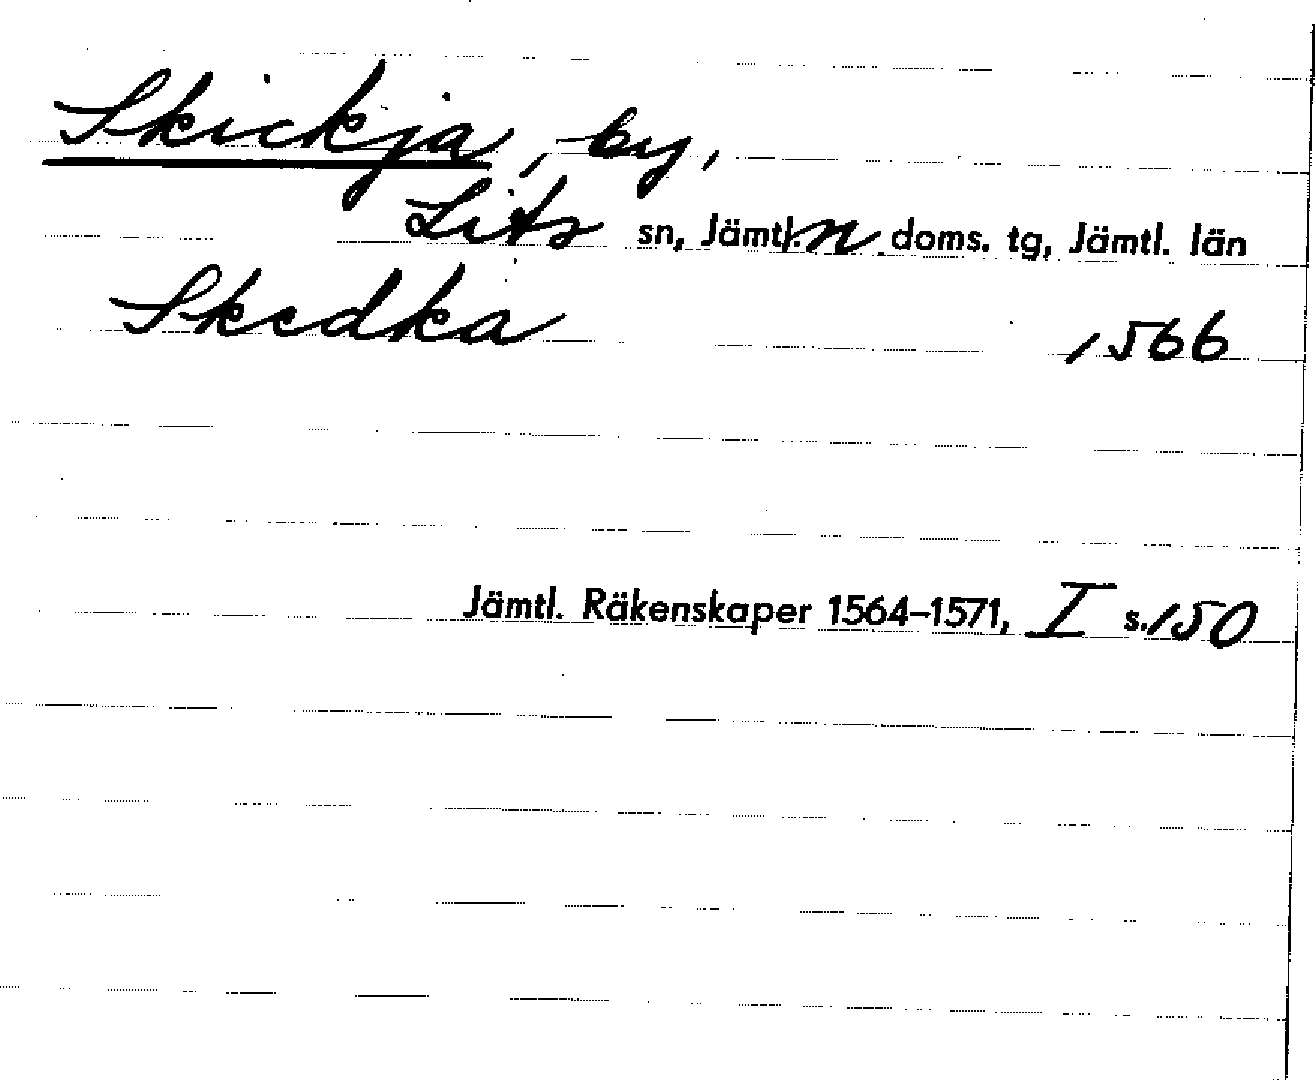 Skickja, by,
Lits sn, Jämtl. n. doms. tg, Jämtl. län
Skedka 1566
Jämtl. Räkenskaper 1564–1571, I s. 150